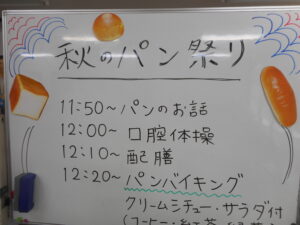 秋のパン祭り
11:50～ パンのお話
12:00～ 口腔体操
12:10～ 配膳
12:20～ パンバイキング
クリームシチュー・サラダ付
(コーヒー・紅茶